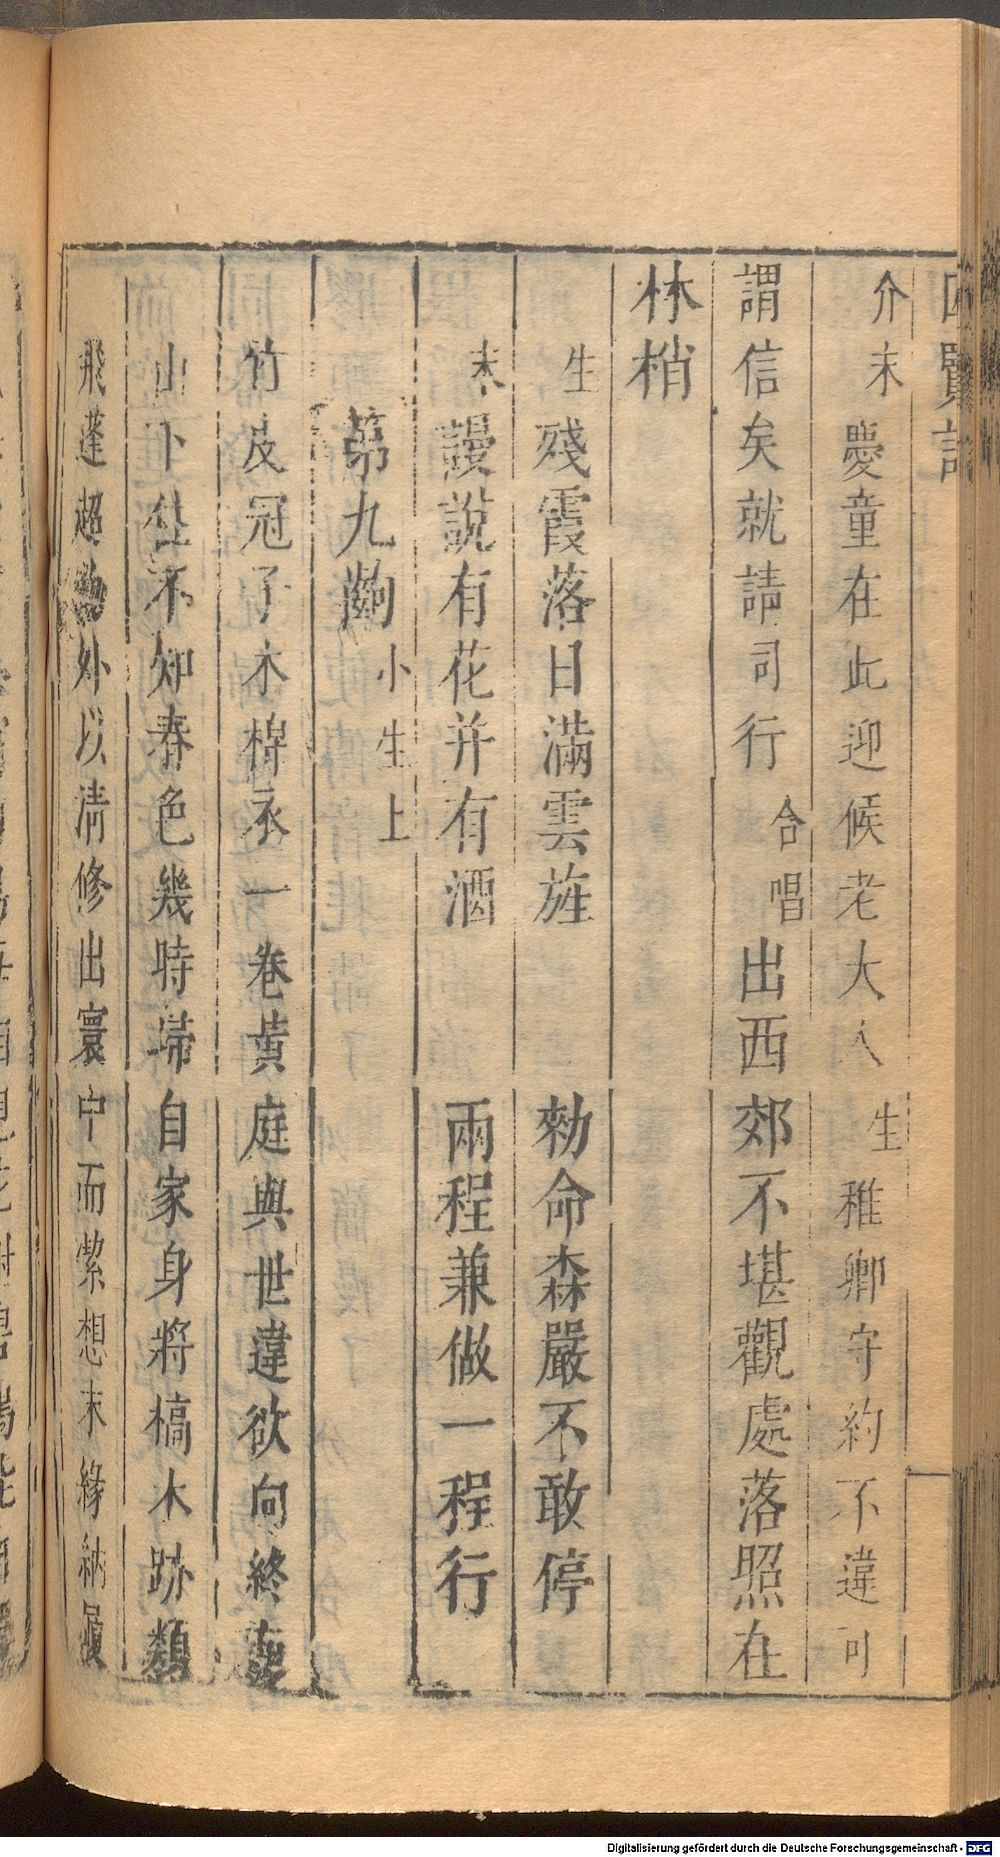 四賢記
介末慶童在此迎候老大人生稚卿守約不違可
謂信矣就請司行合唱出西郊不堪觀處落照在
林梢
生殘霞落日滿雲旌 勑命森嚴不敢停
末謾說有花并有酒 兩程兼做一程行
第九齣小生上
竹皮冠子木棉衣一卷黃庭與世違欲向終南
山下住不知春色幾時歸自家身將槁木跡類
飛蓬超物外以清修出寰中而潔想末緣納屨
Digitalisierung gefördert durch die Deutsche Forschungsgemeinschaft - DFG